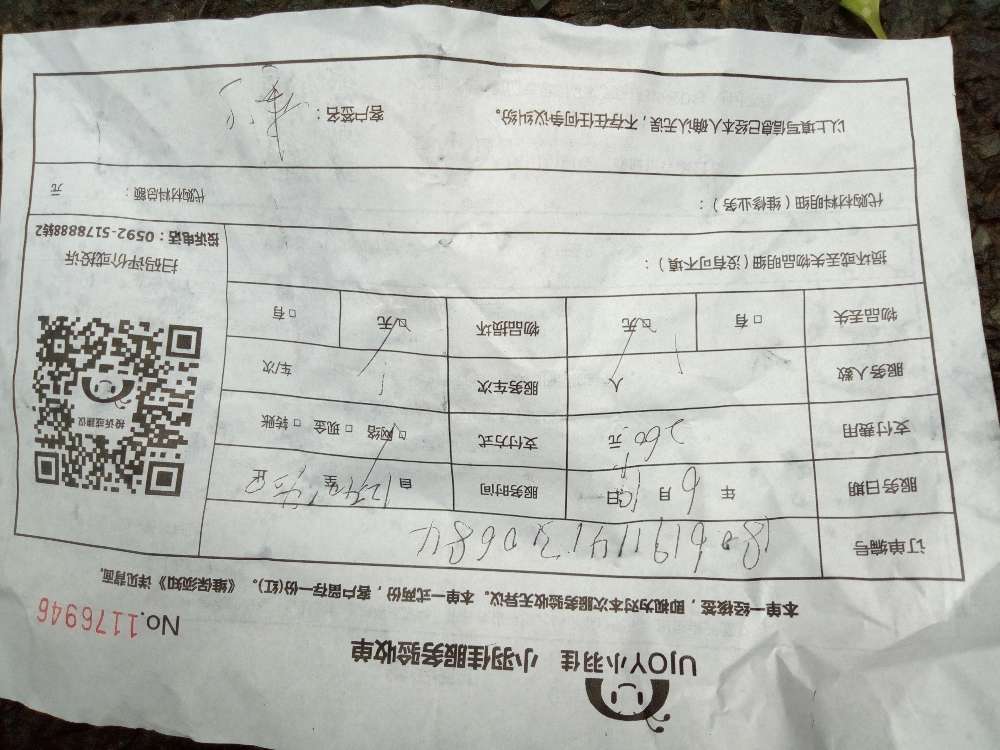 UJOY小羽佳 小羽佳服务验收单
No.1176946
本单一经核签，即视为对本次服务验收无异议。本单一式两份，客户留存一份(红)。《维保须知》详见背面。
订单编号 180619114130684
服务日期 年 6 月 19 日 服务时间 自 至 止
支付费用 260 元 支付方式 □网络 □现金 □转账
服务人数 1 人 服务车次 1 车/次
物品丢失 □有 □无 物品损坏 □无 □有
投诉或建议
扫码评价或投诉
投诉电话：0592-5178888转2
损坏或丢失物品明细(没有可不填)：
代购材料明细（维修业务）： 代购材料总额： 元
以上填写信息已经本人确认无误，不存在任何争议纠纷。 客户签名：